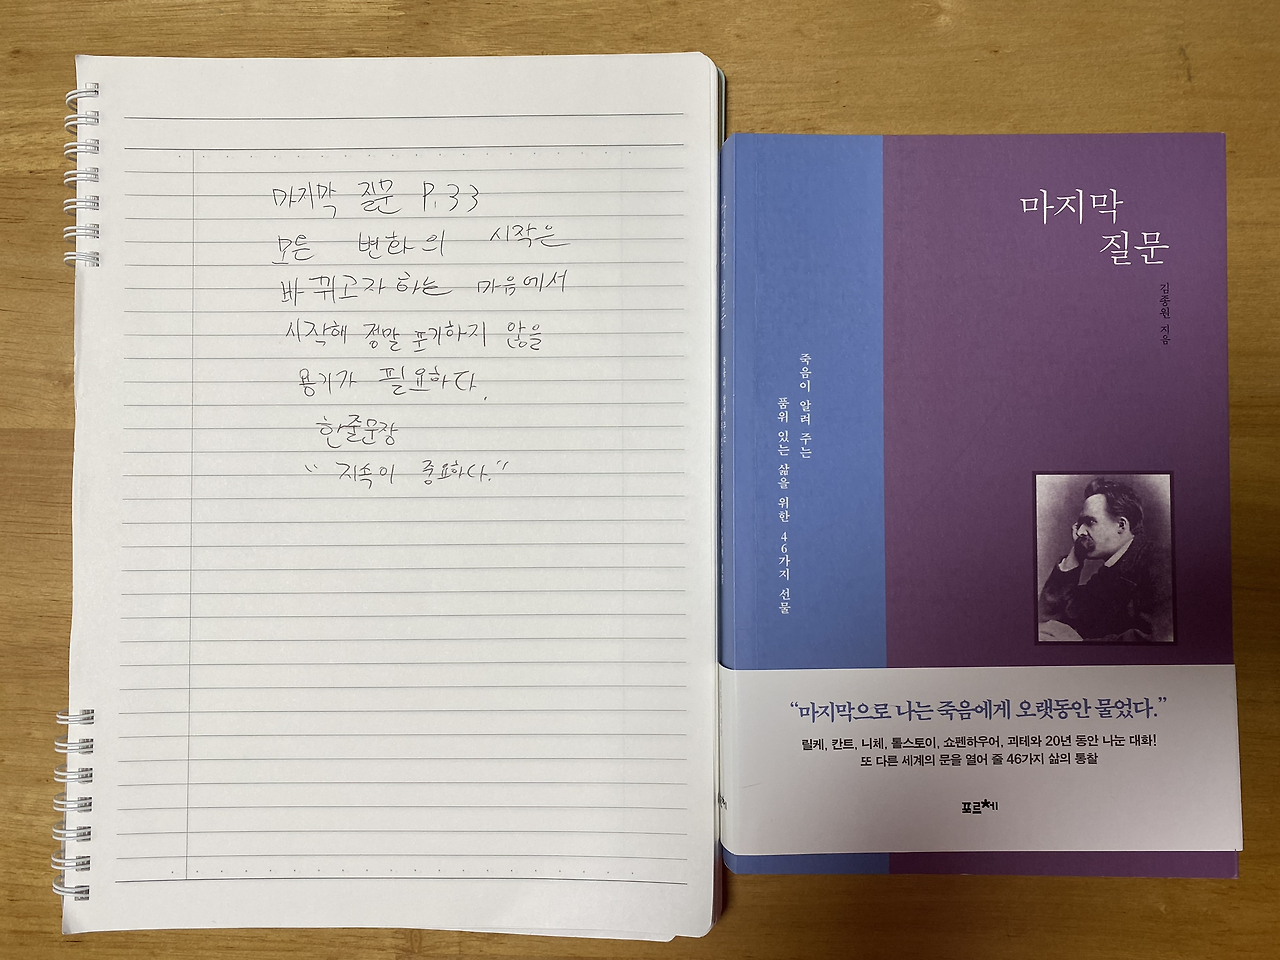 마지막 질문 P.33
모든 변화의 시작은
바뀌고자 하는 마음에서
시작해 정말 포기하지 않을
용기가 필요하다.
한줄문장
"지속이 중요하다."
마지막
질문
김종원 지음
죽음이 알려 주는
품위 있는 삶을 위한 46가지 선물
“마지막으로 나는 죽음에게 오랫동안 물었다.”
릴케, 칸트, 니체, 톨스토이, 쇼펜하우어, 괴테와 20년 동안 나눈 대화!
또 다른 세계의 문을 열어 줄 46가지 삶의 통찰
포르체